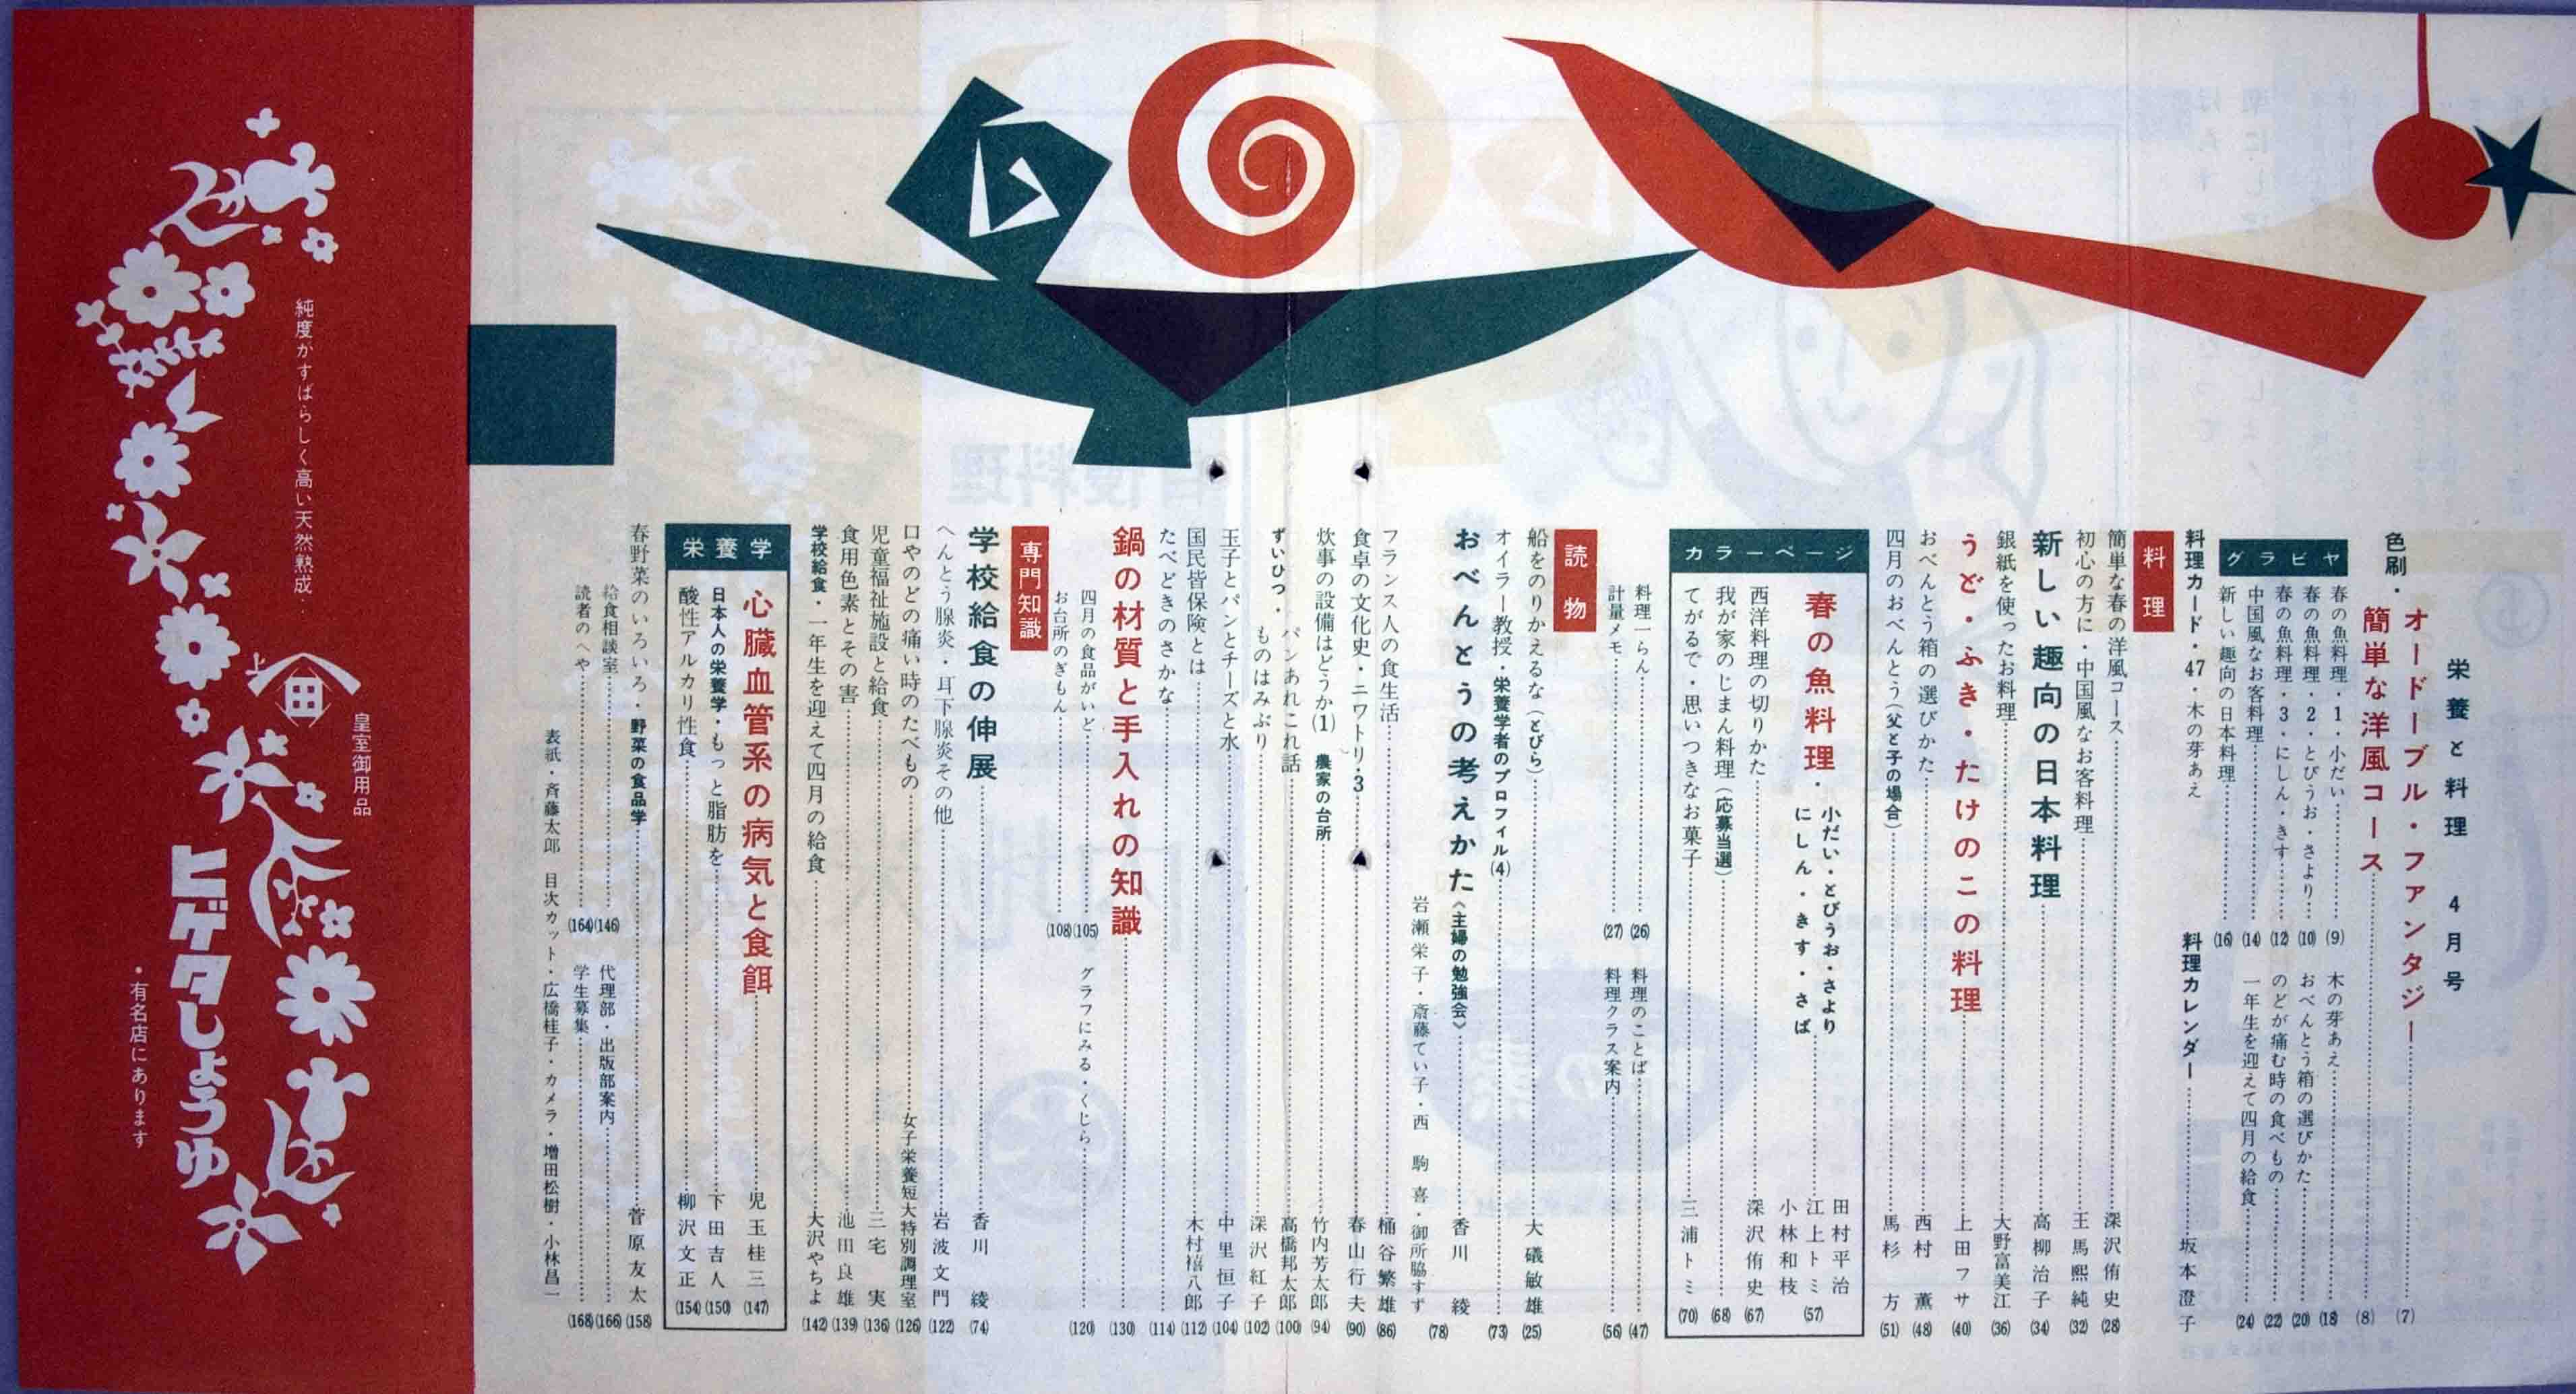 栄養と料理 4月号
色刷・オードーブル・ファンタジー (7)
簡単な洋風コース (8)
グラビヤ
春の魚料理・1・小だい (9)
春の魚料理・2・とびうお・さより (10)
春の魚料理・3・にしん・きす (12)
中国風なお客料理 (14)
新しい趣向の日本料理 (16)
木の芽あえ (18)
おべんとう箱の選びかた (20)
のどが痛む時の食べもの (22)
一年生を迎えて四月の給食 (24)
料理カード・47・木の芽あえ 料理カレンダー 坂本澄子
料理
簡単な春の洋風コース 深沢侑史 (28)
初心の方に・中国風なお客料理 王馬熙純 (32)
新しい趣向の日本料理 高柳治子 (34)
銀紙を使ったお料理 大野富美江 (36)
うど・ふき・たけのこの料理 上田フサ (40)
おべんとう箱の選びかた 西村薫 (48)
四月のおべんとう(父と子の場合) 馬杉方 (51)
カラーページ
春の魚料理・小だい・とびうお・さより
にしん・きす・さば
田村平治
江上トミ (57)
小林和枝
西洋料理の切りかた 深沢侑史 (67)
我が家のじまん料理(応募当選) (68)
てがるで・思いつきなお菓子 三浦トミ (70)
料理一らん (26)
計量メモ (27)
料理のことば (47)
料理クラス案内 (56)
読物
船をのりかえるな(とびら) 大礒敏雄 (25)
オイラー教授・栄養学者のプロフイル(4) (73)
おべんとうの考えかた〈主婦の勉強会〉 香川綾 (78)
岩瀬栄子・斎藤てい子・西駒喜・御所脇すず
フランス人の食生活 桶谷繁雄 (86)
食卓の文化史・ニワトリ・3 春山行夫 (90)
炊事の設備はどうか(1) 農家の台所 竹内芳太郎 (94)
ずいひつ・パンあれこれ話 高橋邦太郎 (100)
ものはみぶり 深沢紅子 (102)
玉子とパンとチーズと水 中里恒子 (104)
国民皆保険とは 木村禧八郎 (112)
たべどきのさかな (114)
鍋の材質と手入れの知識 (130)
四月の食品がいど (105)
お台所のぎもん (108)
グラフにみる・くじら (120)
専門知識
学校給食の伸展 香川綾 (74)
へんとう腺炎・耳下腺炎その他 岩波文門 (122)
口やのどの痛い時のたべもの 女子栄養短大特別調理室 (126)
児童福祉施設と給食 三宅実 (136)
食用色素とその害 池田良雄 (139)
学校給食・一年生を迎えて四月の給食 大沢やちよ (142)
栄養学
心臓血管系の病気と食餌 児玉桂三 (147)
日本人の栄養学・もっと脂肪を 下田吉人 (150)
酸性アルカリ性食 柳沢文正 (154)
春野菜のいろいろ・野菜の食品学 菅原友太 (158)
給食相談室 (146)
読者のへや (164)
代理部・出版部案内 (166)
学生募集 (168)
表紙・斉藤太郎 目次カット・広橋桂子・カメラ・増田松樹・小林昌一
皇室御用品
純度がすばらしく高い天然熟成‥
上
田
ヒゲタしょうゆ
・有名店にあります